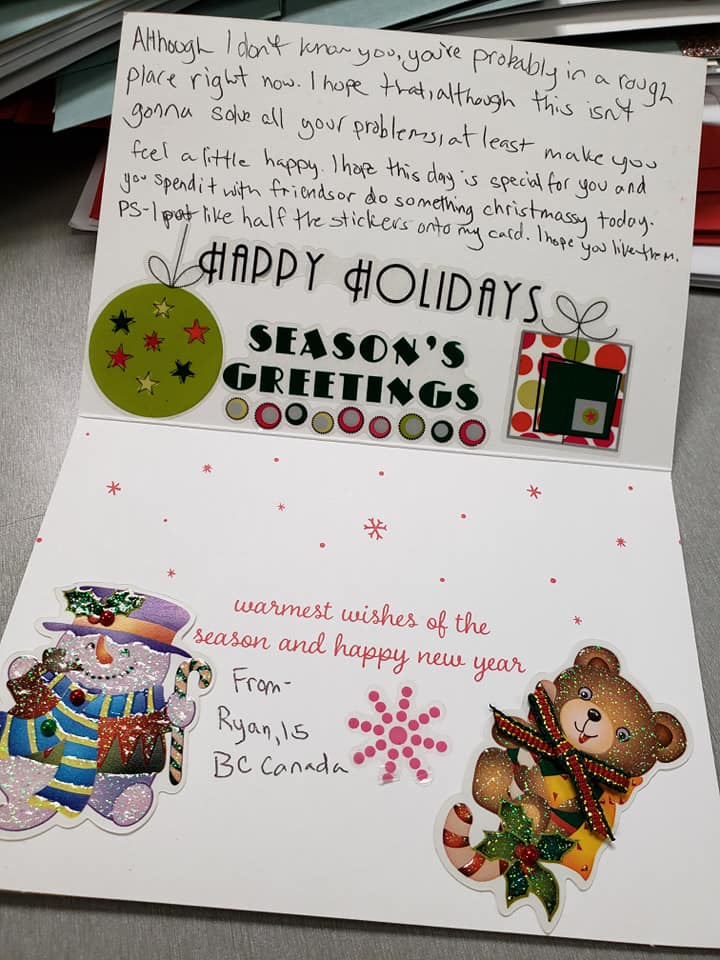 Although I don't know you, you're probably in a rough
place right now. I hope that, although this isn't
gonna solve all your problems, at least make you
feel a little happy. I hope this day is special for you and
you spend it with friends or do something christmassy today.
PS-I put like half the stickers onto my card. I hope you like them.
HAPPY HOLIDAYS
SEASON'S
GREETINGS
warmest wishes of the
season and happy new year
From-
Ryan, 15
BC Canada